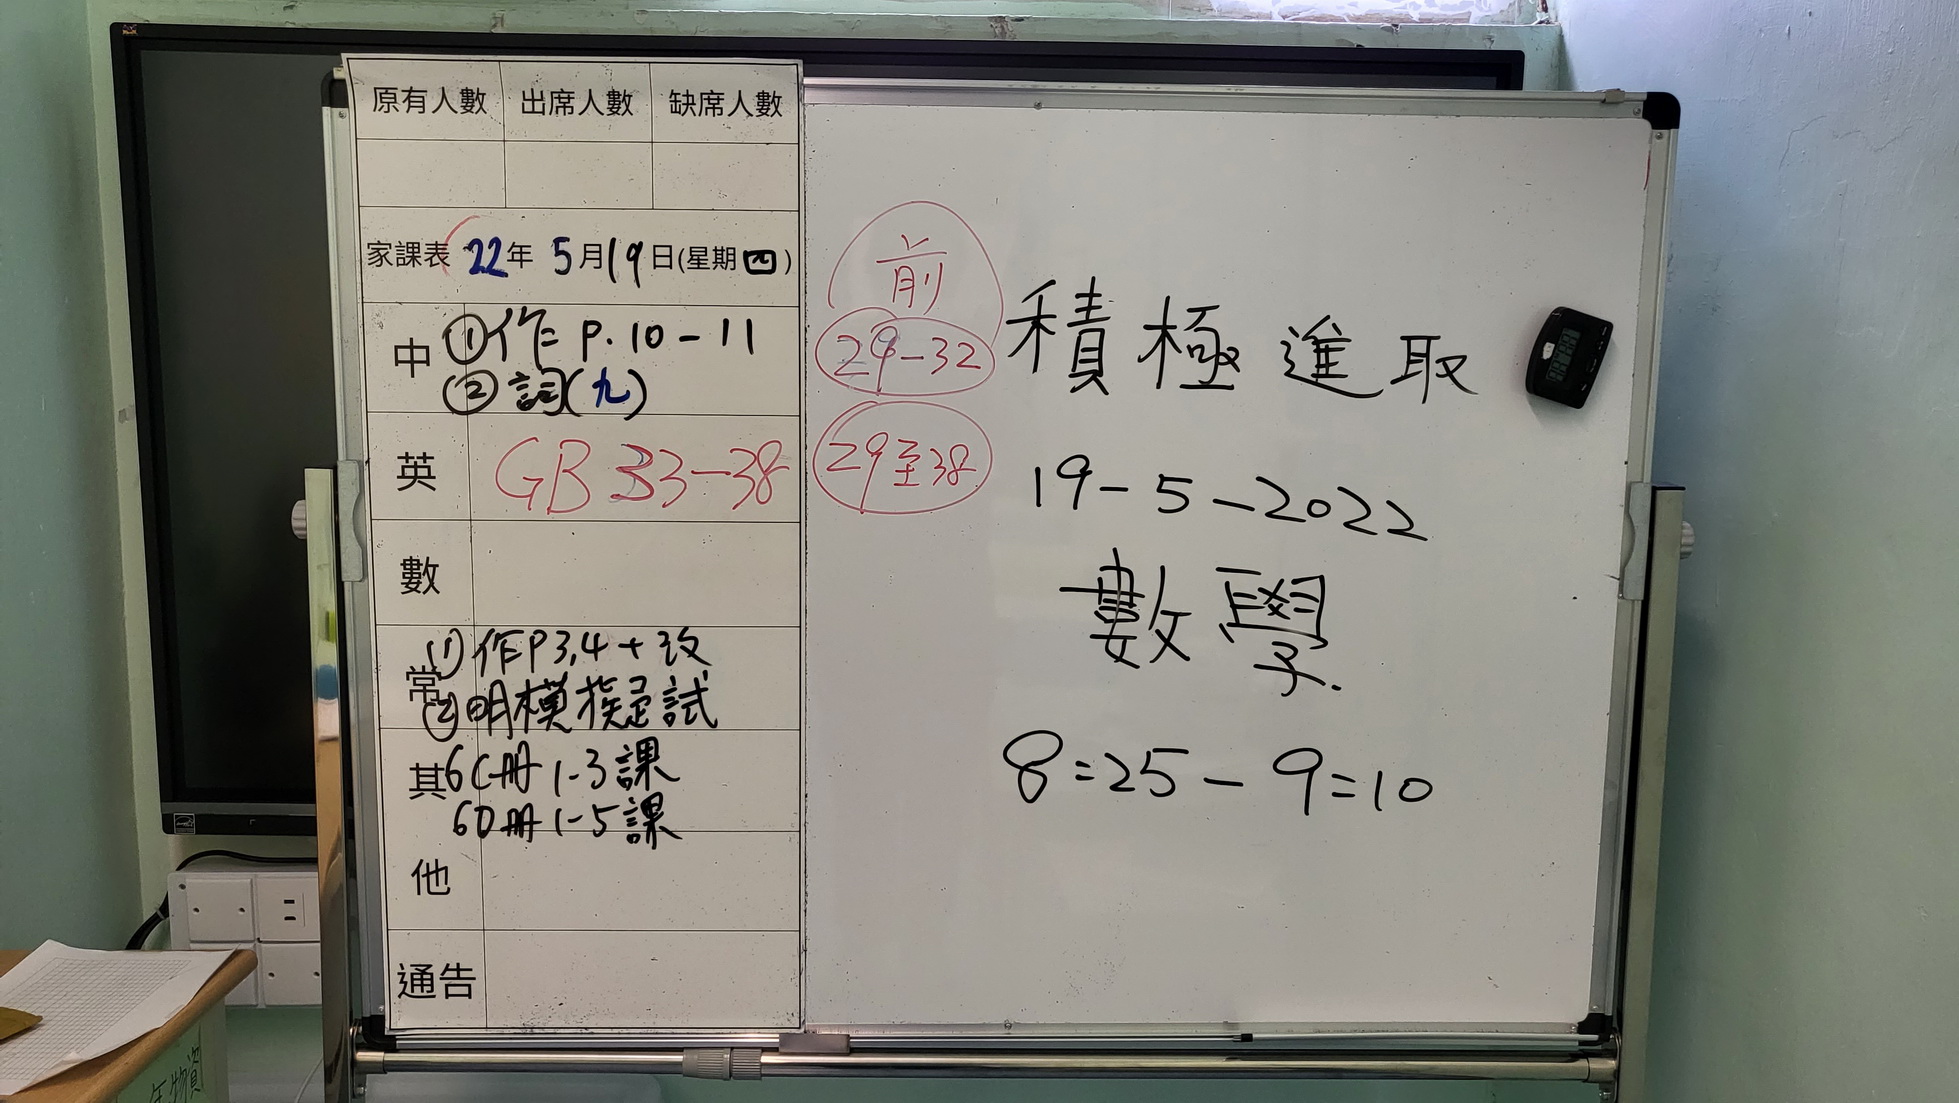 原有人數 出席人數 缺席人數
家課表 22年 5月19日(星期四)
中 ①作 P.10-11
② 詞(九)
英 GB 33-38
數
常 ①作P3,4+改
②明模擬試
其他 6C冊 1-3課
6D冊 1-5課
通告
前
29-32
29至38
積極進取
19-5-2022
數學.
8=25-9=10
年物資